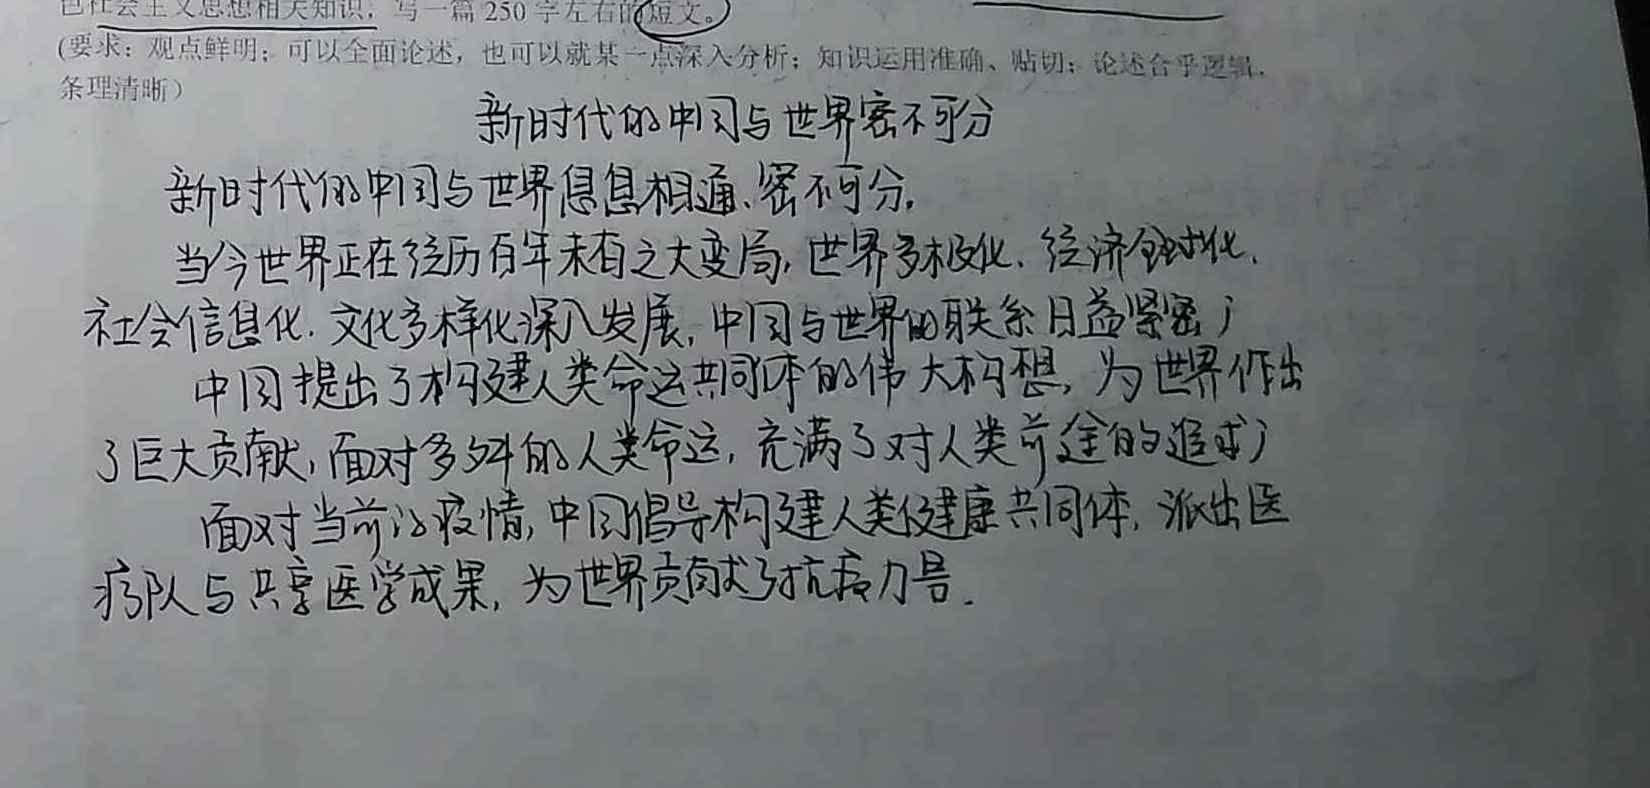 色社会主义思想相关知识，写一篇 250 字左右的短文。
(要求：观点鲜明；可以全面论述，也可以就某一点深入分析；知识运用准确、贴切；论述合乎逻辑，
条理清晰）
新时代的中国与世界密不可分
新时代的中国与世界息息相通、密不可分。
当今世界正在经历百年未有之大变局，世界多极化、经济全球化、
社会信息化、文化多样化深入发展，中国与世界的联系日益紧密；
中国提出了构建人类命运共同体的伟大构想，为世界作出
了巨大贡献，面对多舛的人类命运，充满了对人类前途的追求；
面对当前的疫情，中国倡导构建人类健康共同体，派出医
疗队与共享医学成果，为世界贡献了抗疫力量。